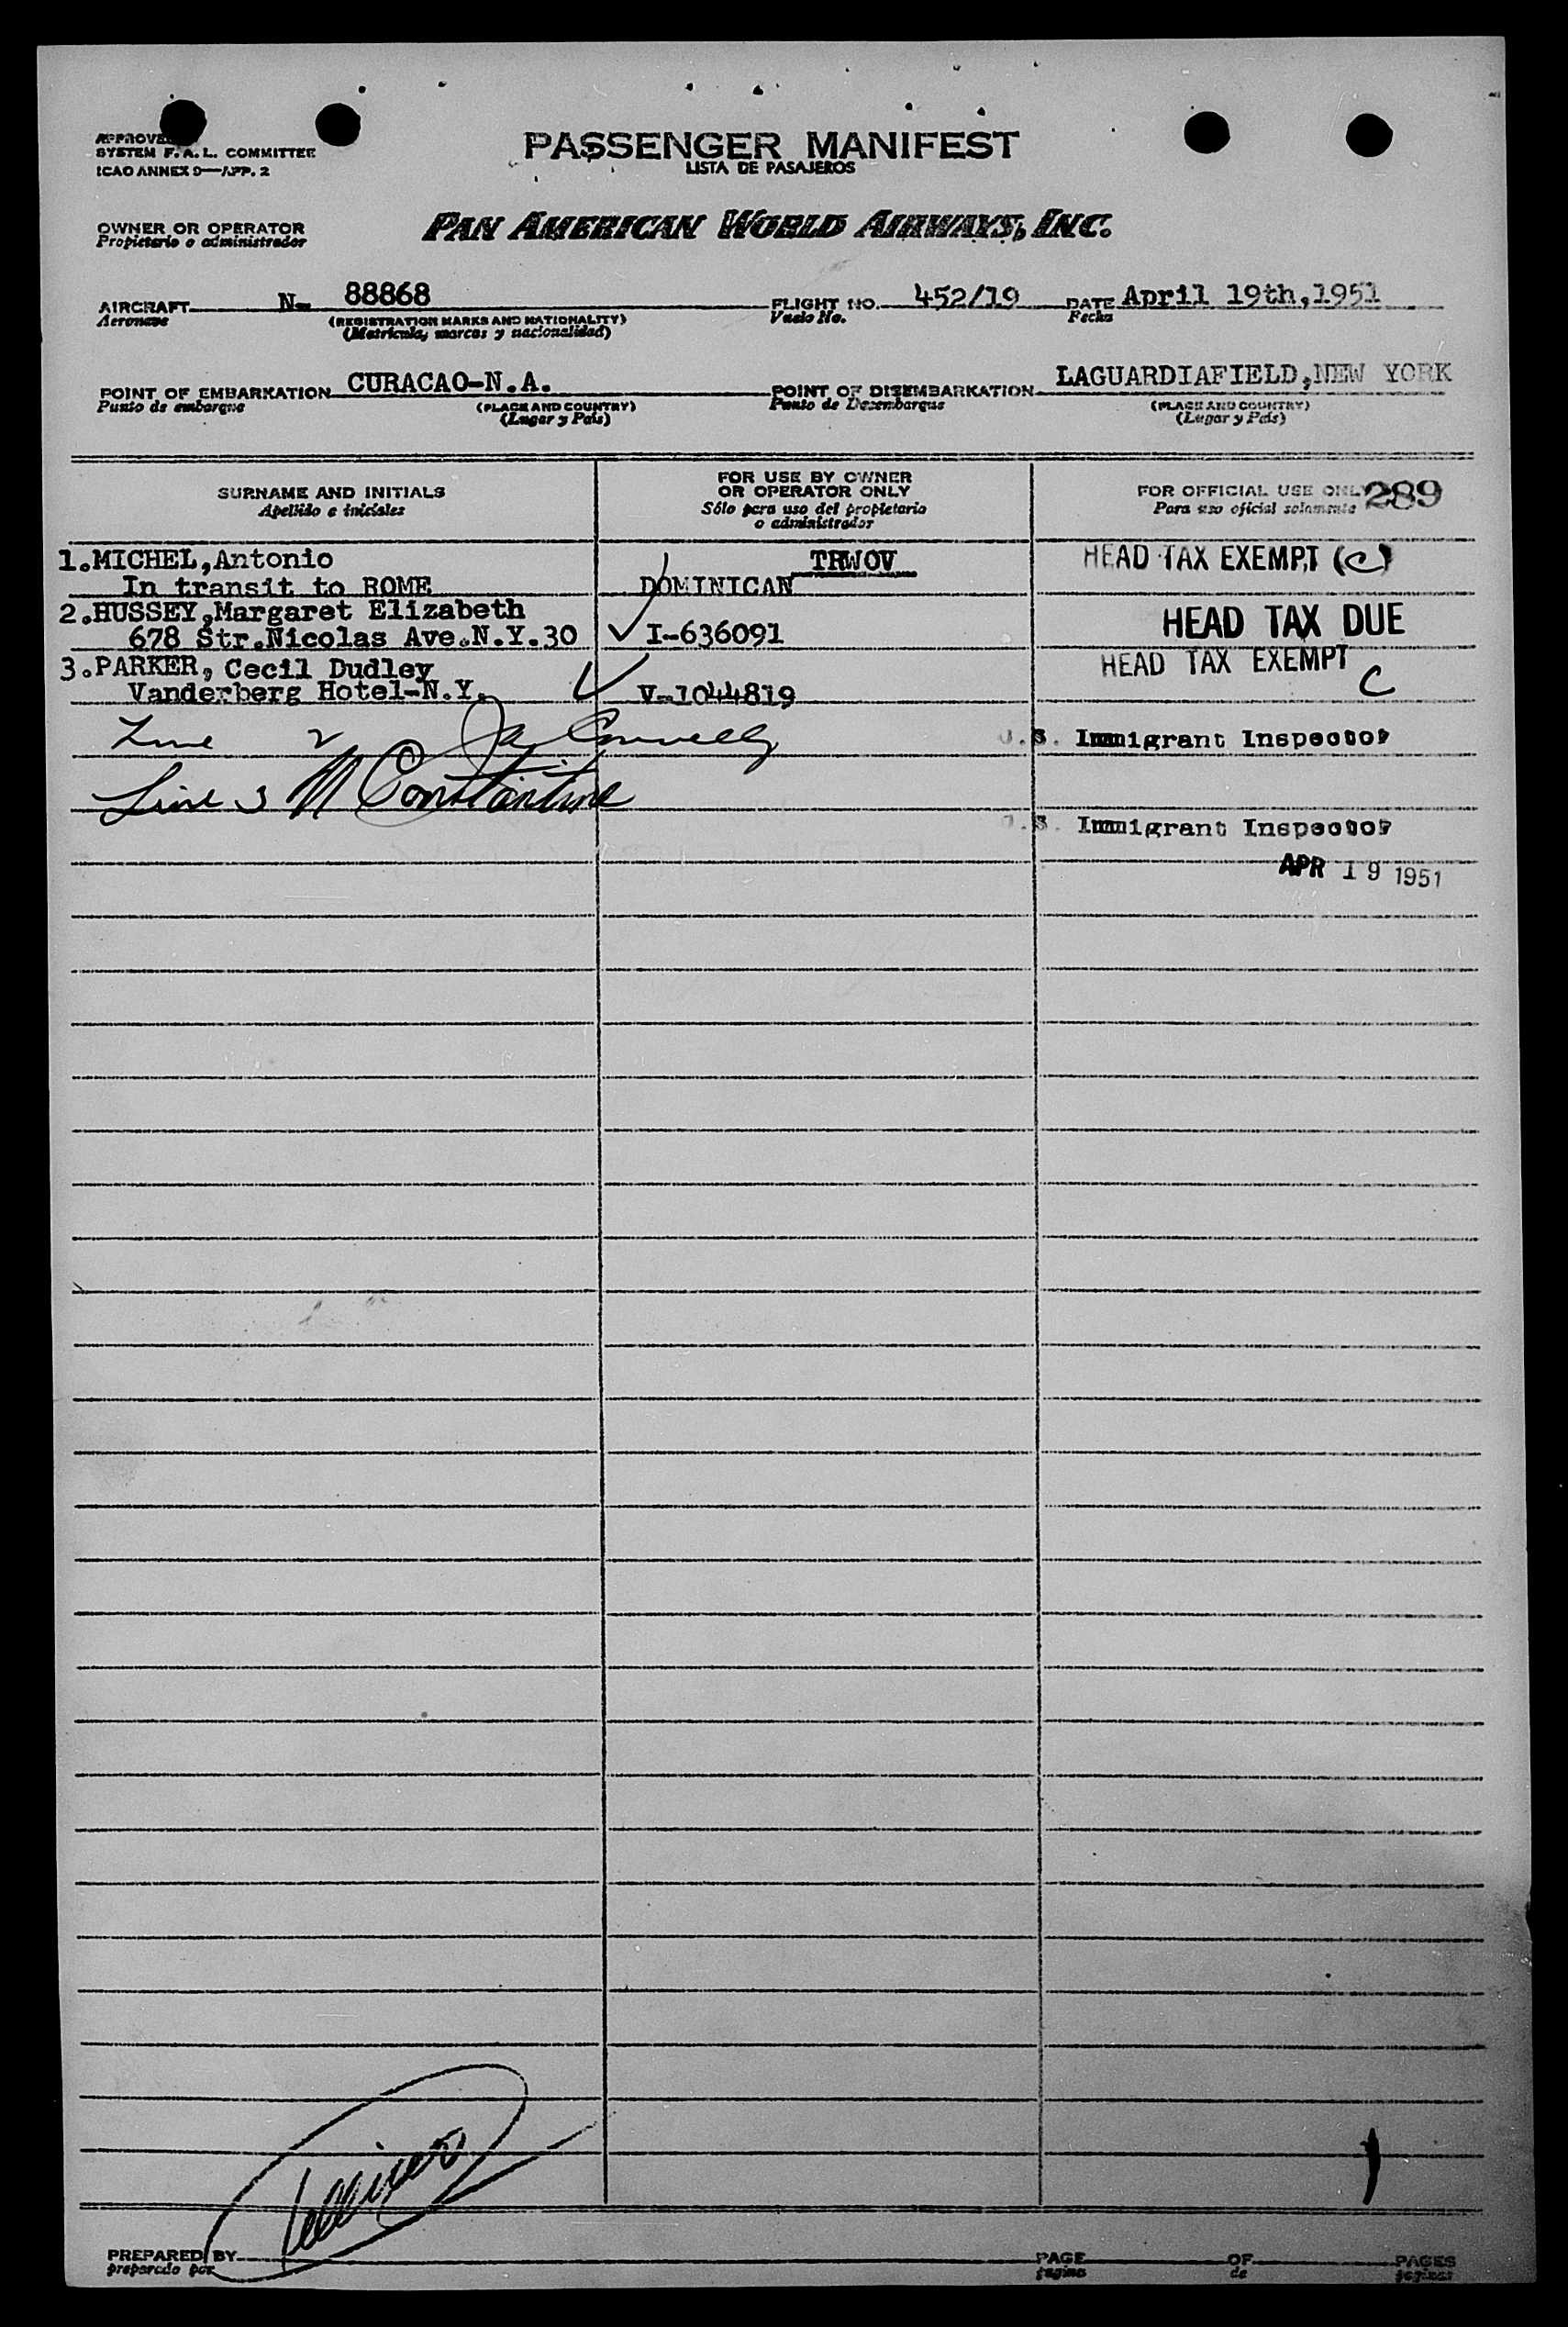 APPROVED
SYSTEM F.A.L. COMMITTEE
ICAO ANNEX 9—APP. 2
PASSENGER MANIFEST
LISTA DE PASAJEROS
OWNER OR OPERATOR
Propietario o administrador
PAN AMERICAN WORLD AIRWAYS, INC.
AIRCRAFT N- 88868 FLIGHT NO. 452/19 DATE April 19th,1951
Aeronave (REGISTRATION MARKS AND NATIONALITY) Vuelo No. Fecha
(Matrícula, marcas y nacionalidad)
POINT OF EMBARKATION CURACAO-N.A. POINT OF DISEMBARKATION LAGUARDIAFIELD,NEW YORK
Punto de embarque (PLACE AND COUNTRY) Punto de Desembarque (PLACE AND COUNTRY)
(Lugar y País) (Lugar y País)
SURNAME AND INITIALS
Apellido e iniciales
FOR USE BY OWNER
OR OPERATOR ONLY
Sólo para uso del propietario
o administrador
FOR OFFICIAL USE ONLY 289
Para uso oficial solamente
1.MICHEL,Antonio TRWOV HEAD TAX EXEMPT (C)
In transit to ROME DOMINICAN
2.HUSSEY,Margaret Elizabeth HEAD TAX DUE
678 Str.Nicolas Ave.N.Y.30 I-636091
3.PARKER, Cecil Dudley HEAD TAX EXEMPT
Vanderberg Hotel-N.Y. V-1044819 C
Line 2 Connelly U.S. Immigrant Inspector
Line 3 M Constantine
U.S. Immigrant Inspector
APR 19 1951
PREPARED BY PAGE OF PAGES
preparado por página de páginas